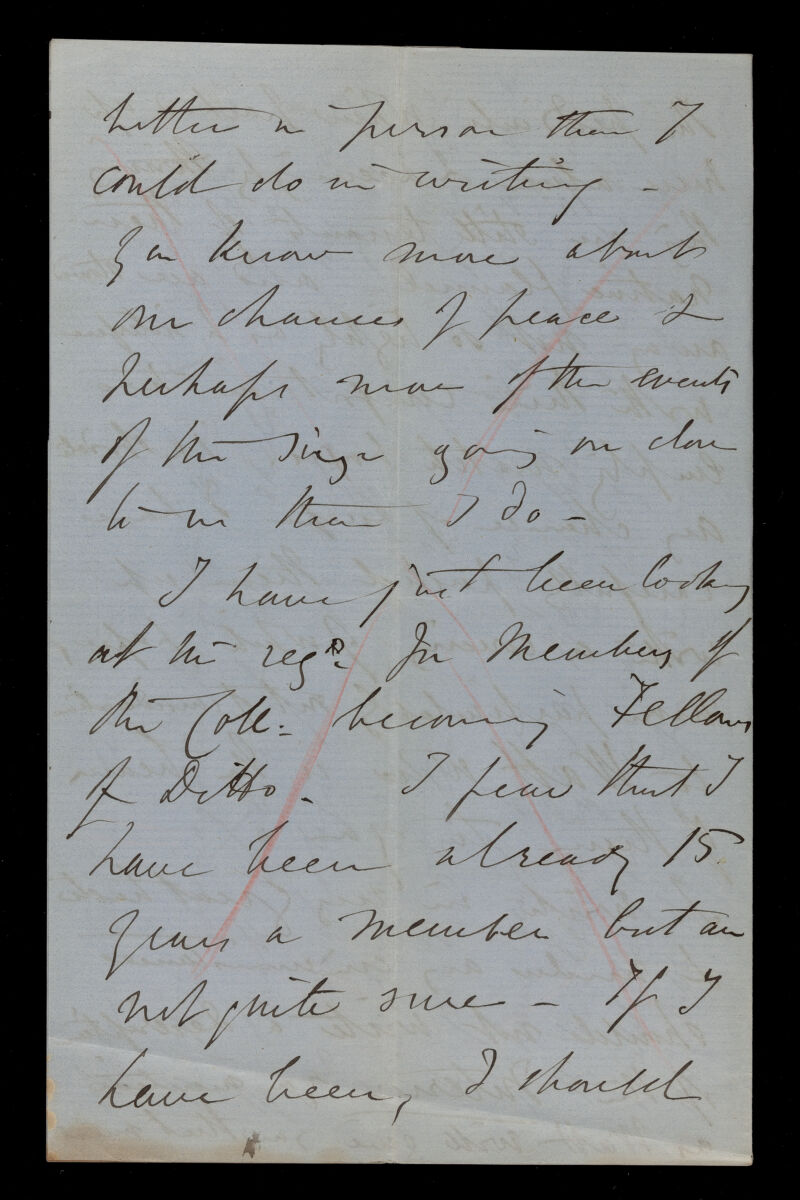 better in person than I
could do in writing –
you know more about
our chances of peace &
perhaps more of the events
of the siege going on close
to us than I do –
I have just been looking
at the regns. for Members of
the Coll: becoming Fellows
of Ditto – I fear that I
have been already 15
years a member but am
not quite sure – If I
have been, I should